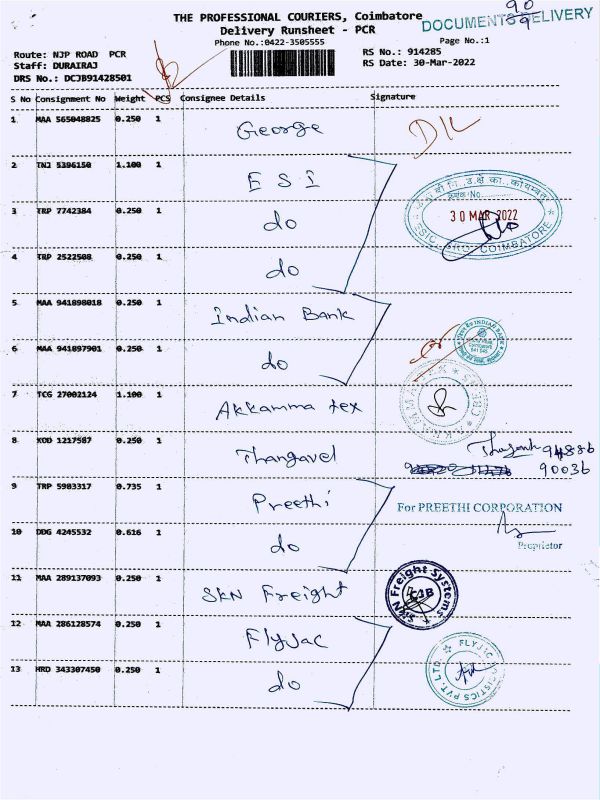 90
9
THE PROFESSIONAL COURIERS, Coimbatore
DOCUMENTS DELIVERY
Delivery Runsheet - PCR
Phone No.:0422-3505555
Page No.:1
Route: NJP ROAD PCR
RS No.: 914285
Staff: DURAIRAJ
RS Date: 30-Mar-2022
DRS No.: DCJB91428501
S No Consignment No Weight PCS Consignee Details Signature
1 MAA 565048825 0.250 1 George
2 TNJ 5396150 1.100 1 E S I
3 TRP 7742384 0.250 1 do
30 MAR 2022
ESIC, SRO, COIMBATORE
4 TRP 2522508 0.250 1 do
5 MAA 941898018 0.250 1 Indian Bank
6 MAA 941897901 0.250 1 do
INDIAN BANK
7 TCG 27002124 1.100 1 Akkamma tex
8 KOD 1217587 0.250 1 Thangavel
94886
90036
9 TRP 5903317 0.735 1 Preethi
For PREETHI CORPORATION
10 DDG 4245532 0.616 1 do
Proprietor
11 MAA 289137093 0.250 1 SKN Freight
SKN Freight Systems
CJB
12 MAA 286128574 0.250 1 Flyjac
13 HRD 343307450 0.250 1 do
FLYJAC LOGISTICS PVT. LTD.